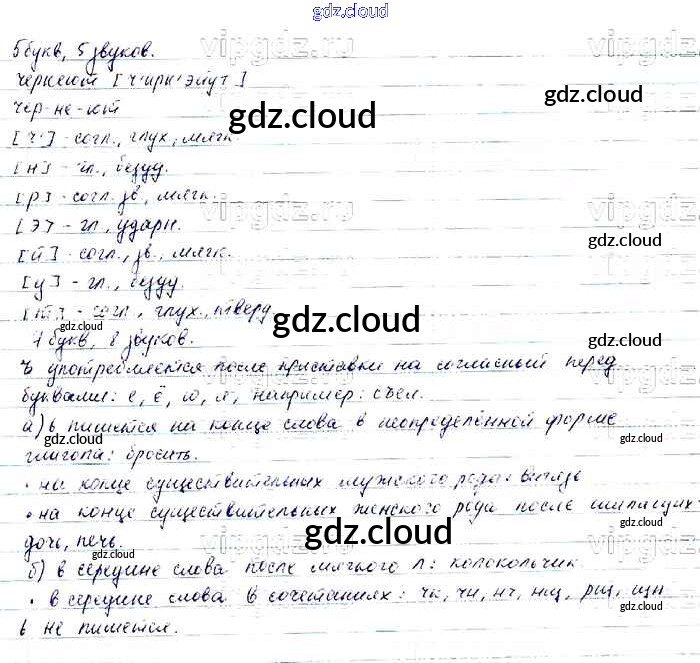 gdz.cloud
5 букв, 5 звуков.
чернеют [ч'ирн'эйут]
чер-не-ют
[ч'] - согл., глух., мягк.
[и] - гл., безуд.
[р] - согл. зв., мягк.
[э] - гл., ударн.
[й] - согл., зв., мягк.
[у] - гл., безуд.
[т] - согл., глух., тверд.
7 букв, 8 звуков.
ъ употребляется после приставки на согласный перед
буквами: е, ё, ю, я, например: съел.
а) ь пишется на конце слова в неопределённой форме
глагола: бросить.
• на конце существительных мужского рода:
• на конце существительных женского рода после шипящих:
дочь, печь.
б) в середине слова после мягкого л: колокольчик.
• в середине слова в сочетаниях: чк, чн, нч, нщ, рщ, щн
ь не пишется.